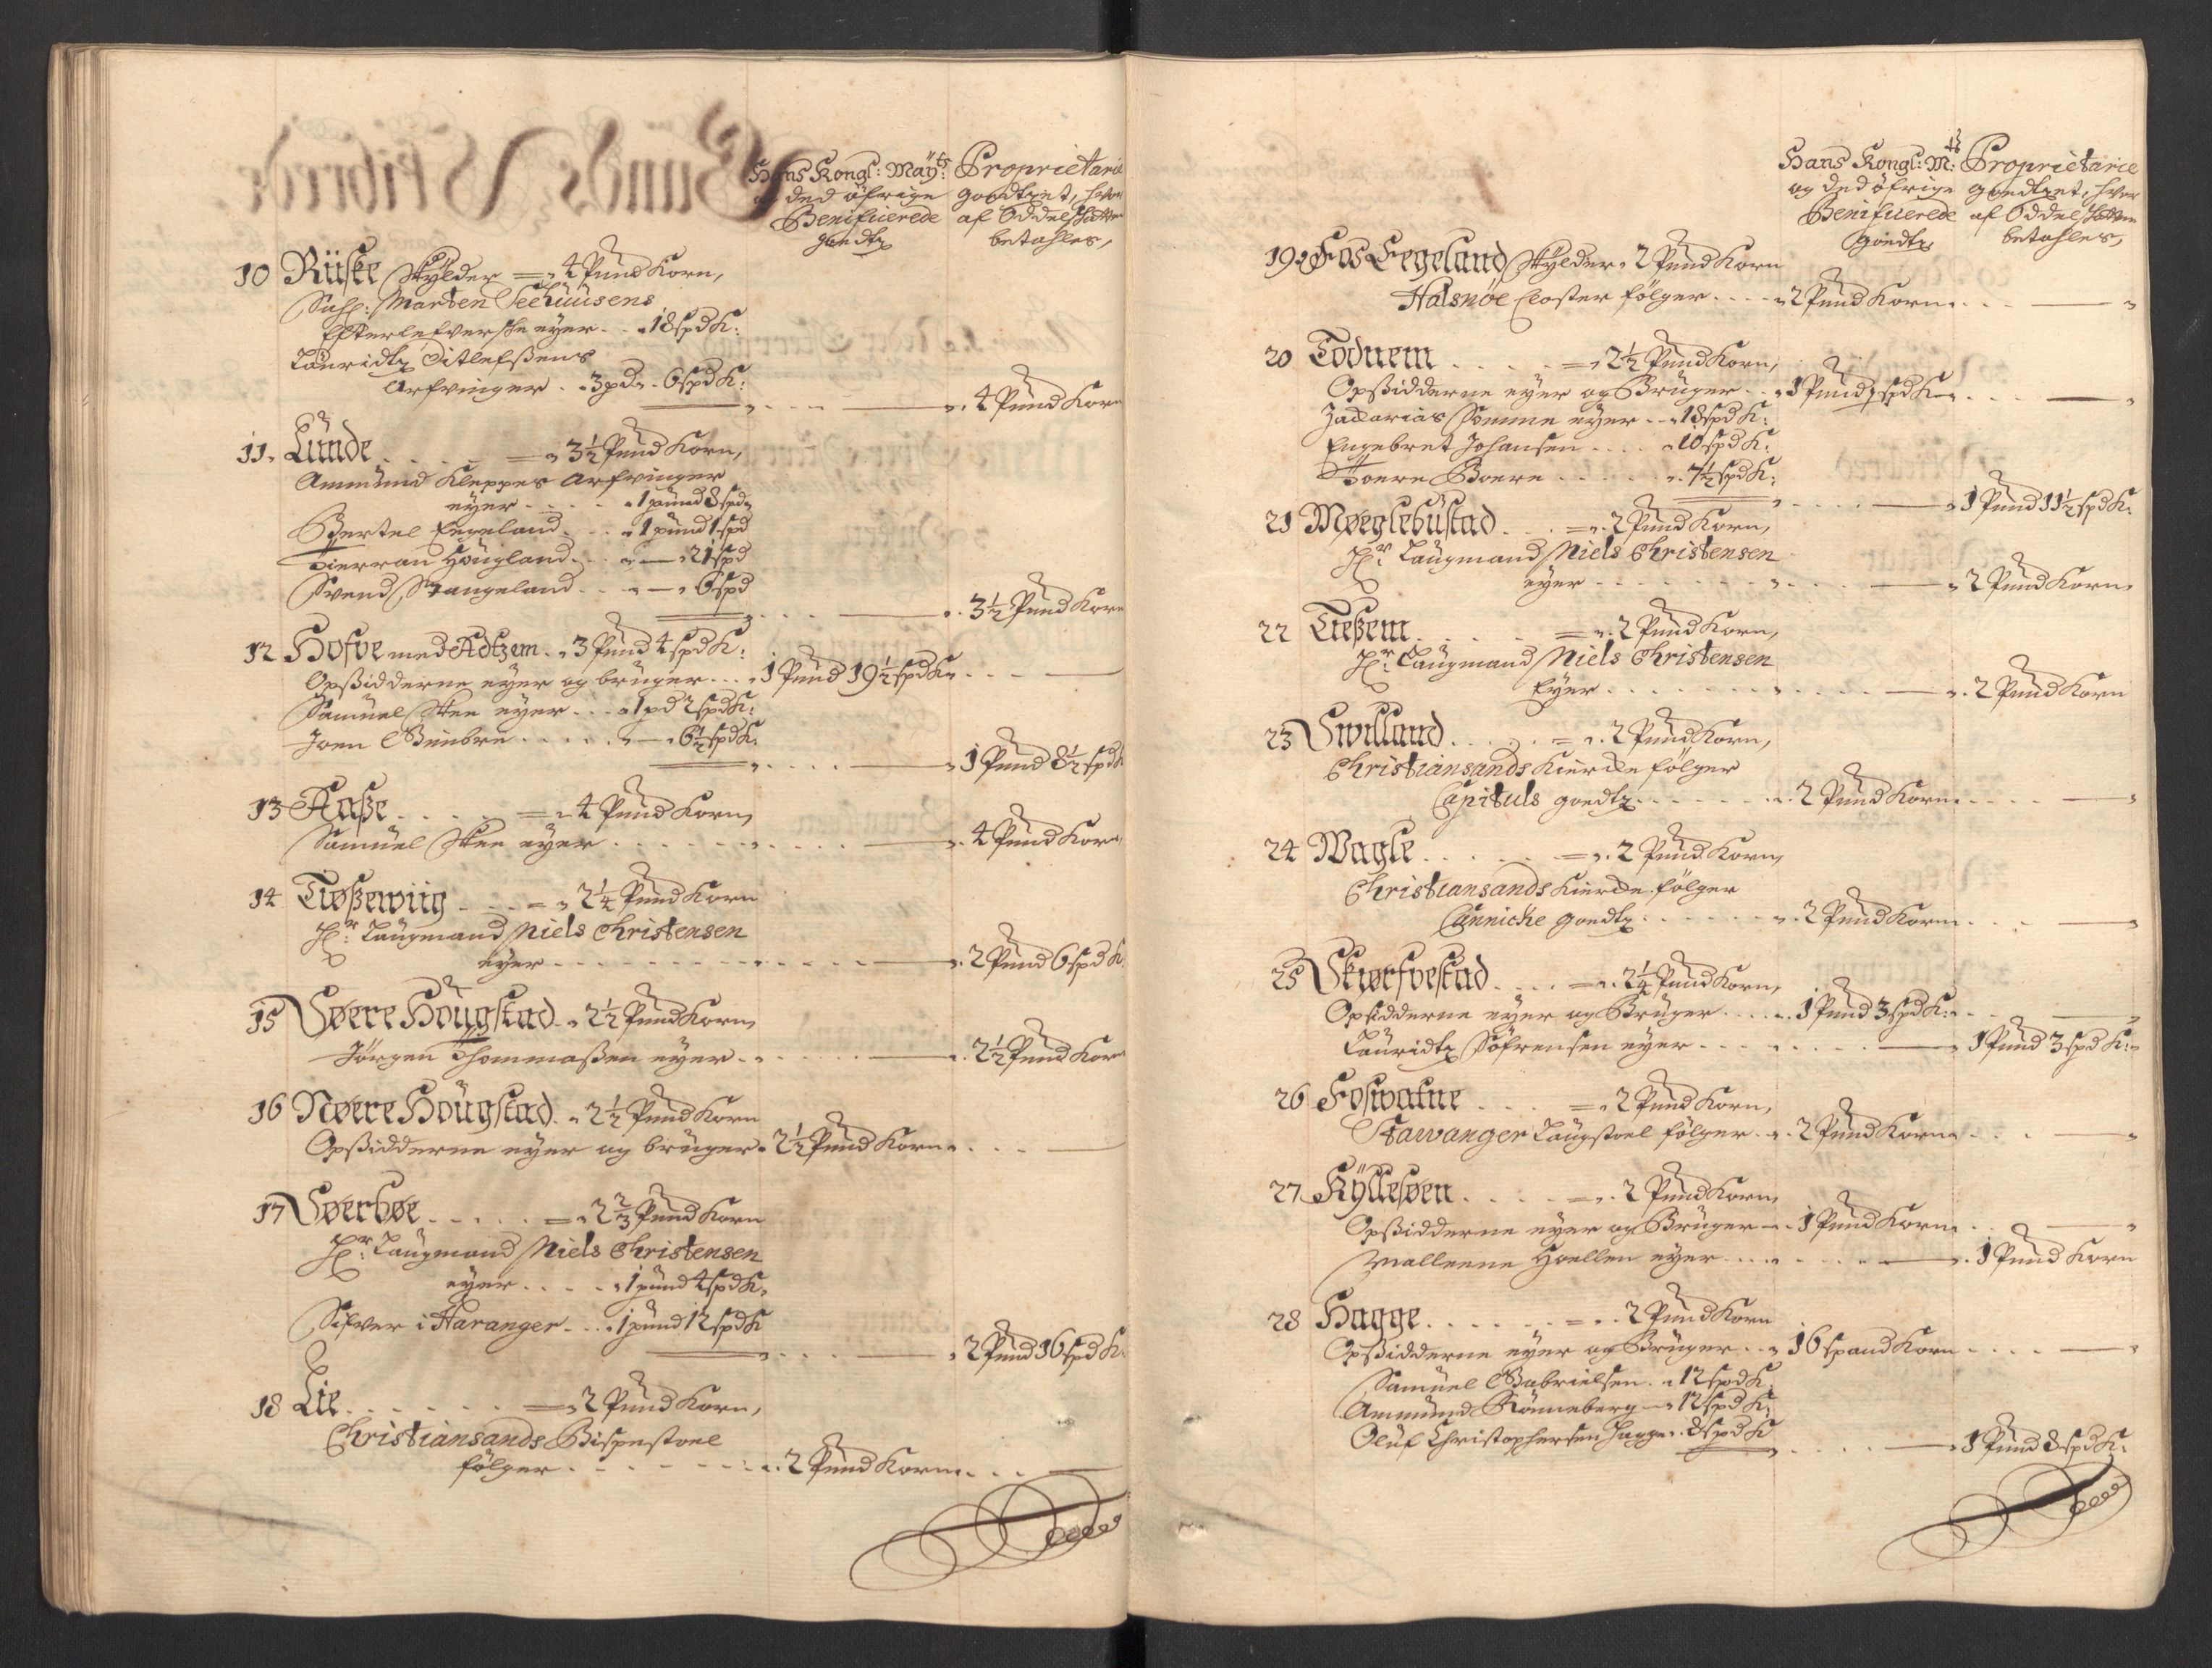 Hans Kongl: Maÿts: Proprietarie
og ded öfrige goedtzet, hvor
Benificerede af Oddel Skatten
goedtz betahles,
10 Rüske Skylder = 4 Pund Korn,
Sahl: Marten Seehuusens
Efterlefverske eyer . . 18 spd K:
Lauridtz Ditlefsens
Arfvinger . . 3 pd . 6 spd K:
4 Pund Korn
11. Lunde . . . . = 3½ Pund Korn,
Ammund Kleppes Arfvinger
eyer . . . . 1 pund 8 spd
Bertel Eegeland . . . 1 pund 1 spd
Tierran Hougland . . . — 21 spd
Svend Stangeland . . . — 6 spd
3½ Pund Korn
12 Hofve med Adtzem . 3 Pund 4 spd K:
Opsidderne eyer og bruger . . . 1 Pund 19½ spd K . . . —
Samuel Steen eyer . . . 1 pd 2 spd K:
Joen Gimbre . . . . . — 6½ spd K.
1 Pund 8½ spd K
13 Aasse . . . . = 4 Pund Korn,
Samuel Steen eyer . . . . . . 4 Pund Korn
14 Tiøssewiig . . . = 2¼ Pund Korn
Hr: Laugmand Niels Christensen
eyer . . . . . . . 2 Pund 6 spd K.
15 Søere Höugstad . 2½ Pund Korn,
Jörgen Thommassen eyer . . . . 2½ Pund Korn
16 Nøere Höugstad . 2½ Pund Korn
Opsidderne eyer og bruger . 2½ Pund Korn . . . . —
17 Søerbøe . . . . . = 2⅔ Pund Korn
Hr: Laugmand Niels Christensen
eyer . . . . 1 pund 4 spd K.
Sifver i Haranger . . . 1 pund 12 spd K
2 Pund 16 spd K.
18 Lie . . . . . . = 2 Pund Korn,
Christiansands Bispestoel
følger . . . . . . . 2 Pund Korn . . . —
Hans Kongl: Mts: Proprietarie
og ded öfrige goedtzet, hvor
Benificerede af Oddel Skatten
goedtz betahles,
19 Fos Eegeland Skylder . 2 Pund Korn
Halsnöe Closter fölger . . . . 2 Pund Korn . . . —
20 Todnem . . . . . = 2½ Pund Korn,
Opsidderne eyer og Bruger . . 1 Pund ½ spd K . . . —
Zacharias Somme eyer . . 18 spd K:
Engebret Johansen . . . . 10 spd K:
Toere Boere . . . . . 7½ spd K:
1 Pund 11½ spd K:
21 Møeglebustad . . . = 2 Pund Korn,
Hr: Laugmand Niels Christensen
eyer . . . . . . . 2 Pund Korn.
22 Tiessem . . . . . = 2 Pund Korn,
Hr: Laugmand Niels Christensen
Eyer . . . . . . . 2 Pund Korn
23 Svilland . . . . . = 2 Pund Korn,
Christiansands Kiercke fölger
Capituls goedtz . . . . . . 2 Pund Korn . . . . —
24 Wagle . . . . . . = 2 Pund Korn,
Christiansands Kiercke fölger
Cannicke goedtz . . . . . . 2 Pund Korn . . . —
25 Skiørfvestad . . . . = 2¼ Pund Korn,
Opsidderne eyer og Bruger . . . . 1 Pund 3 spd K: . . —
Lauridtz Söfrensen eyer . . . . . . 1 Pund 3 spd K:
26 Foswatne . . . . = 2 Pund Korn,
Stawanger Laugstoel fölger . . 2 Pund Korn . . . —
27 Kyllesøen . . . . = 2 Pund Korn,
Opsidderne eyer og Bruger . . 1 Pund Korn . . —
Mallene Hoellen eyer . . . . . . 1 Pund Korn
28 Hagge . . . . . . = 2 Pund Korn
Opsidderne eyer og Bruger . . 16 spand Korn . . . . —
Samuel Gabrielsen . 12 spd K.
Ammund Rönneberg — 12 spd K:
Oluf Christophersen Hagge . 8 spd K
1 Pund 8 spd K: